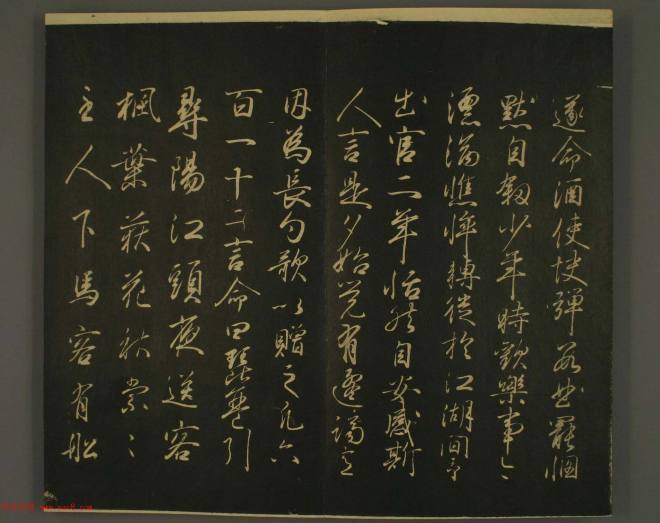 遂命酒使快彈數曲曲罷憫
默自敘少年時歡樂事今
漂淪憔悴轉徙於江湖間予
出官二年恬然自安感斯
人言是夕始覺有遷謫意
因為長句歌以贈之凡六
百一十二言命曰琵琶引
潯陽江頭夜送客
楓葉荻花秋索索
主人下馬客有船